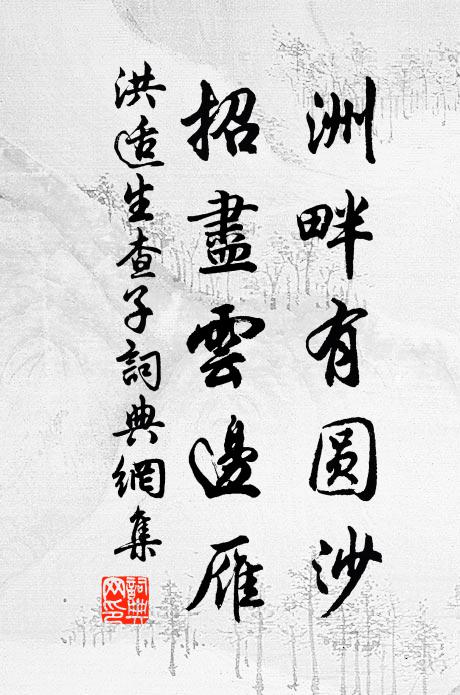 洲畔有圆沙
招盡雲邊雁
洪适生查子詞典網集